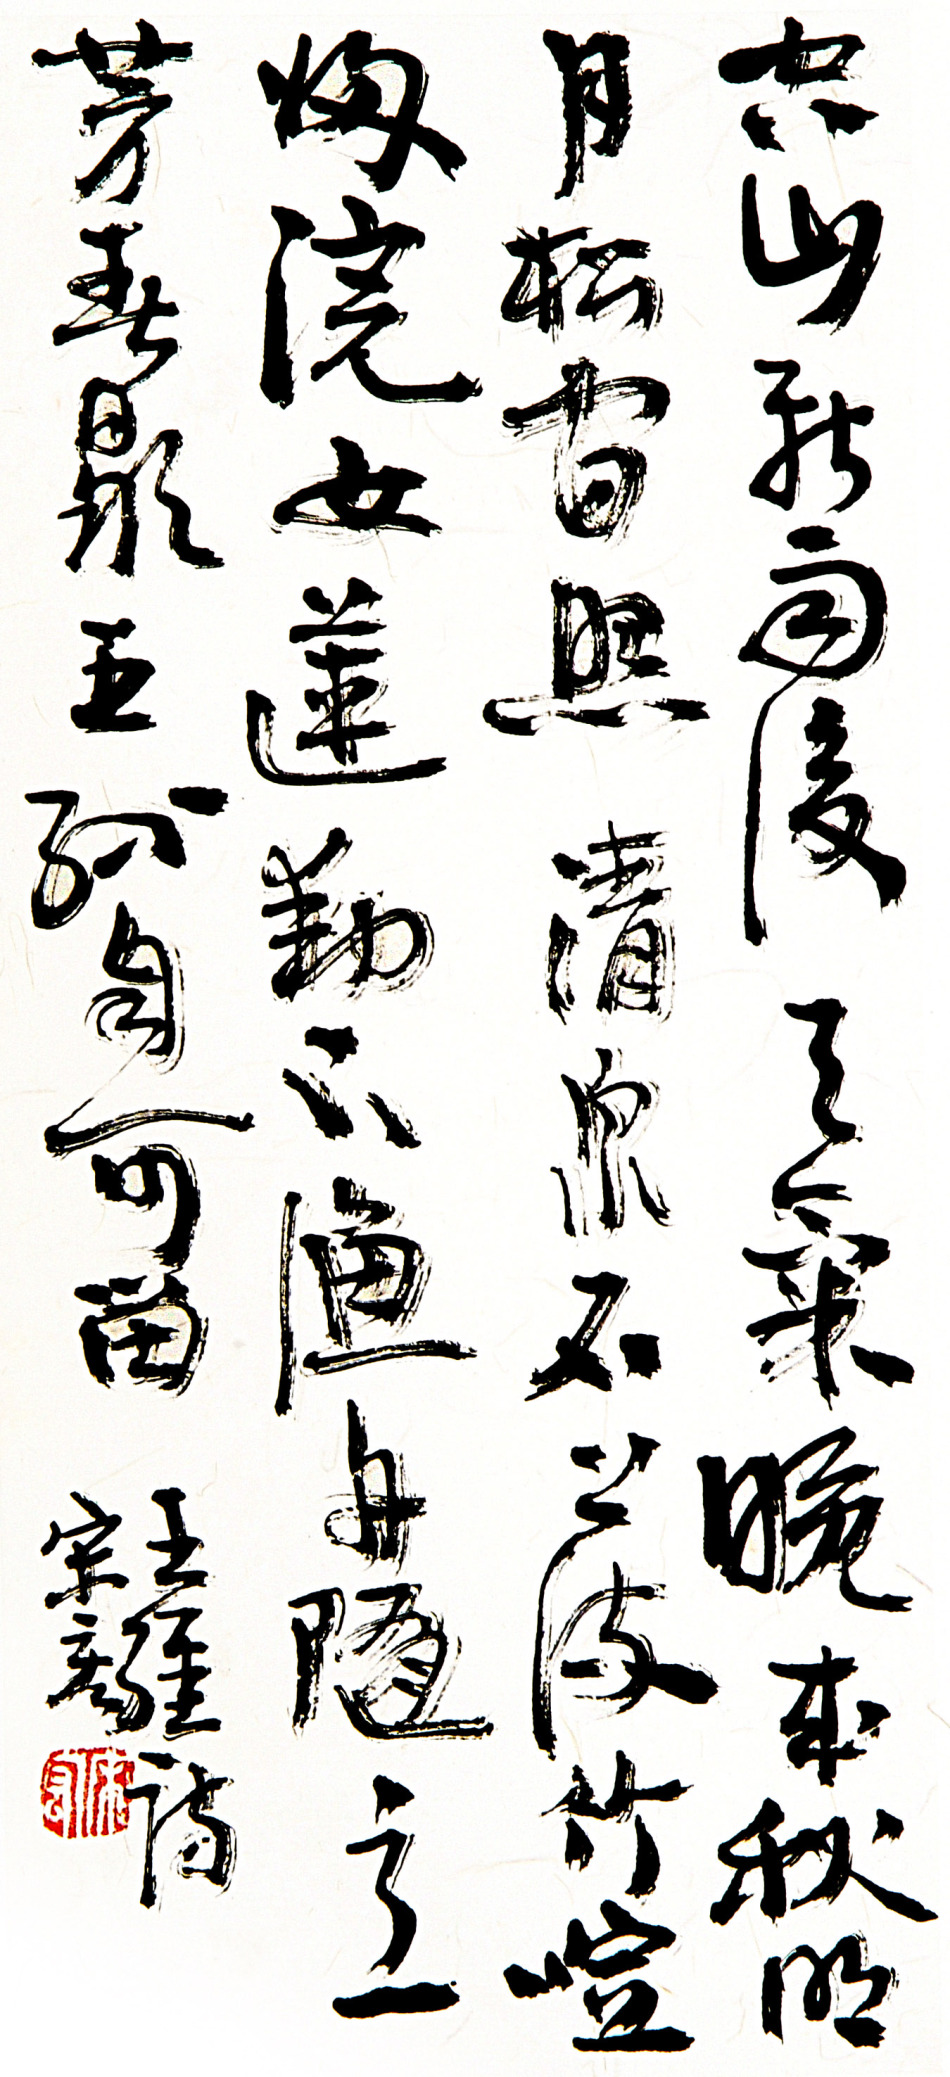 空山新雨後天氣晚來秋明
月松間照清泉石上流竹喧
歸浣女蓮動下漁舟隨意
芳春歇王孫自可留
王維詩
宋